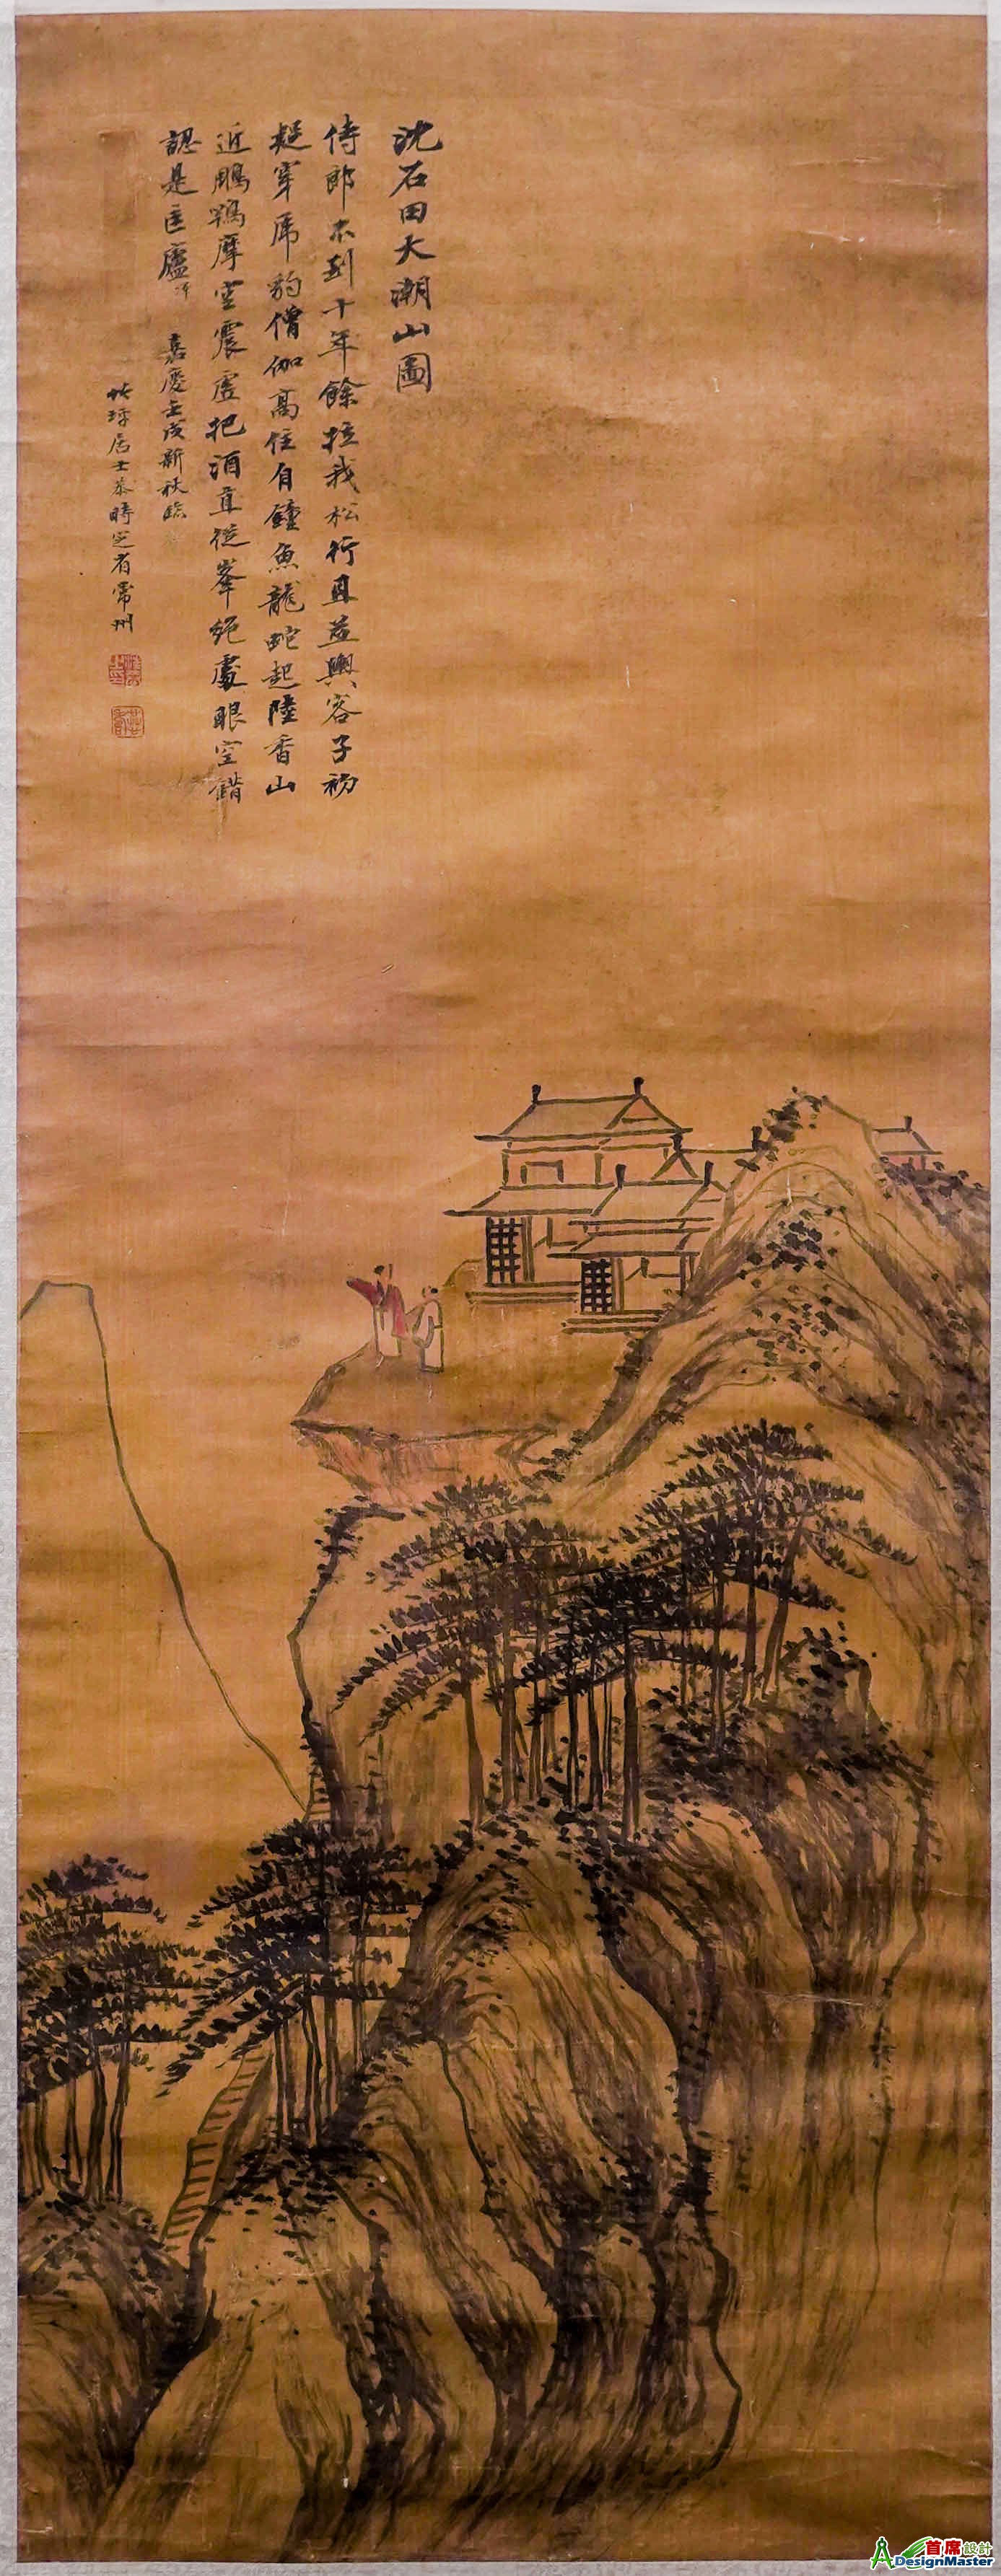 沈石田大潮山圖
侍郎不到十年餘拉我松行且並輿客子初
疑穿席豹僧伽高住有鐘魚龍蛇起陸香山
近鵰鶚摩空震虛把酒直從峯絕處眼空錯
認是匡廬
嘉慶壬戌新秋臨
居士恭時芝省常州
首席設計
DesignMaster